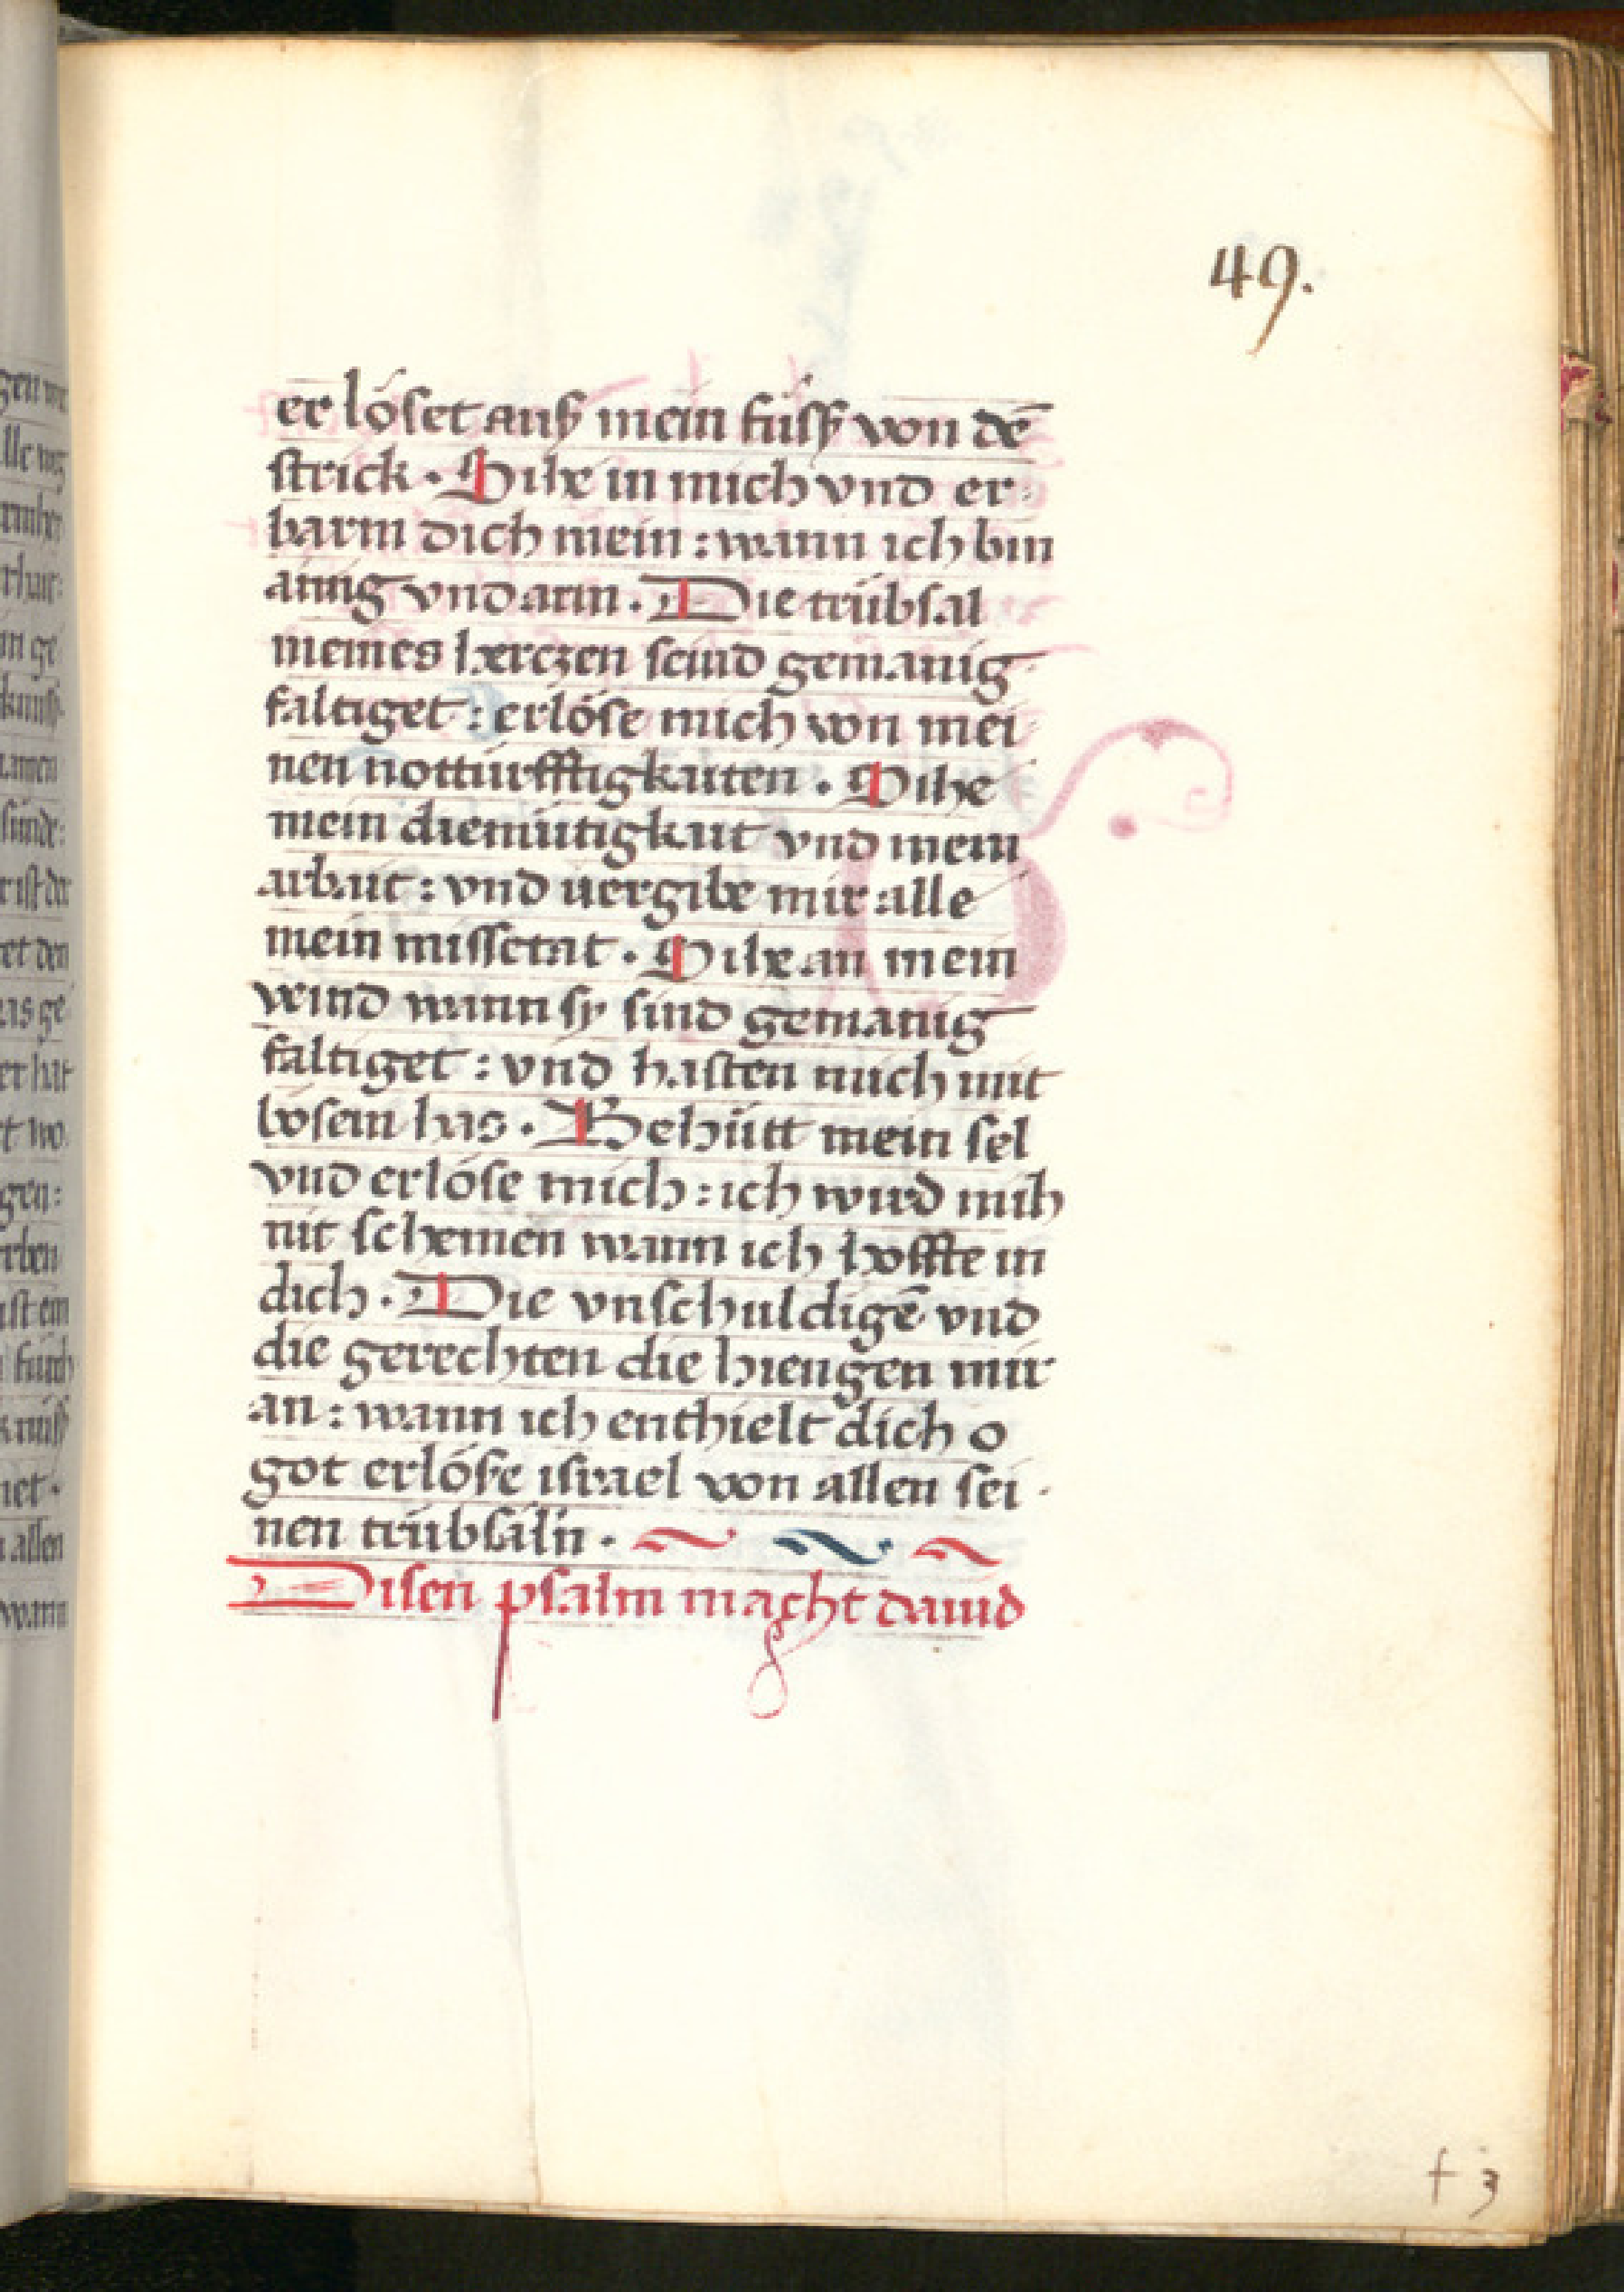 49.
er löset auß mein füsß von dē
strick . Sihe in mich vnd er-
barm dich mein : wann ich bin
ainig vnd arm . Die trübsal
meines herczen seind gemanig
faltiget : erlöse mich von mei
nen notturfftigkaiten . Sihe
mein diemütigkait vnd mein
arbait : vnd vergibe mir alle
mein missetat . Sihe an mein
veind wann sy sind gemanig
faltiget : vnd hasten mich mit
bösem has . Behütt mein sel
vnd erlöse mich : ich wird mih
nit schemen wann ich hoffte in
dich . Die vnschuldigē vnd
die gerechten die hiengen mir
an : wann ich enthielt dich o
got erlöse israel von allen sei
nen trübsaln .
Disen psalm macht dauid
f 3